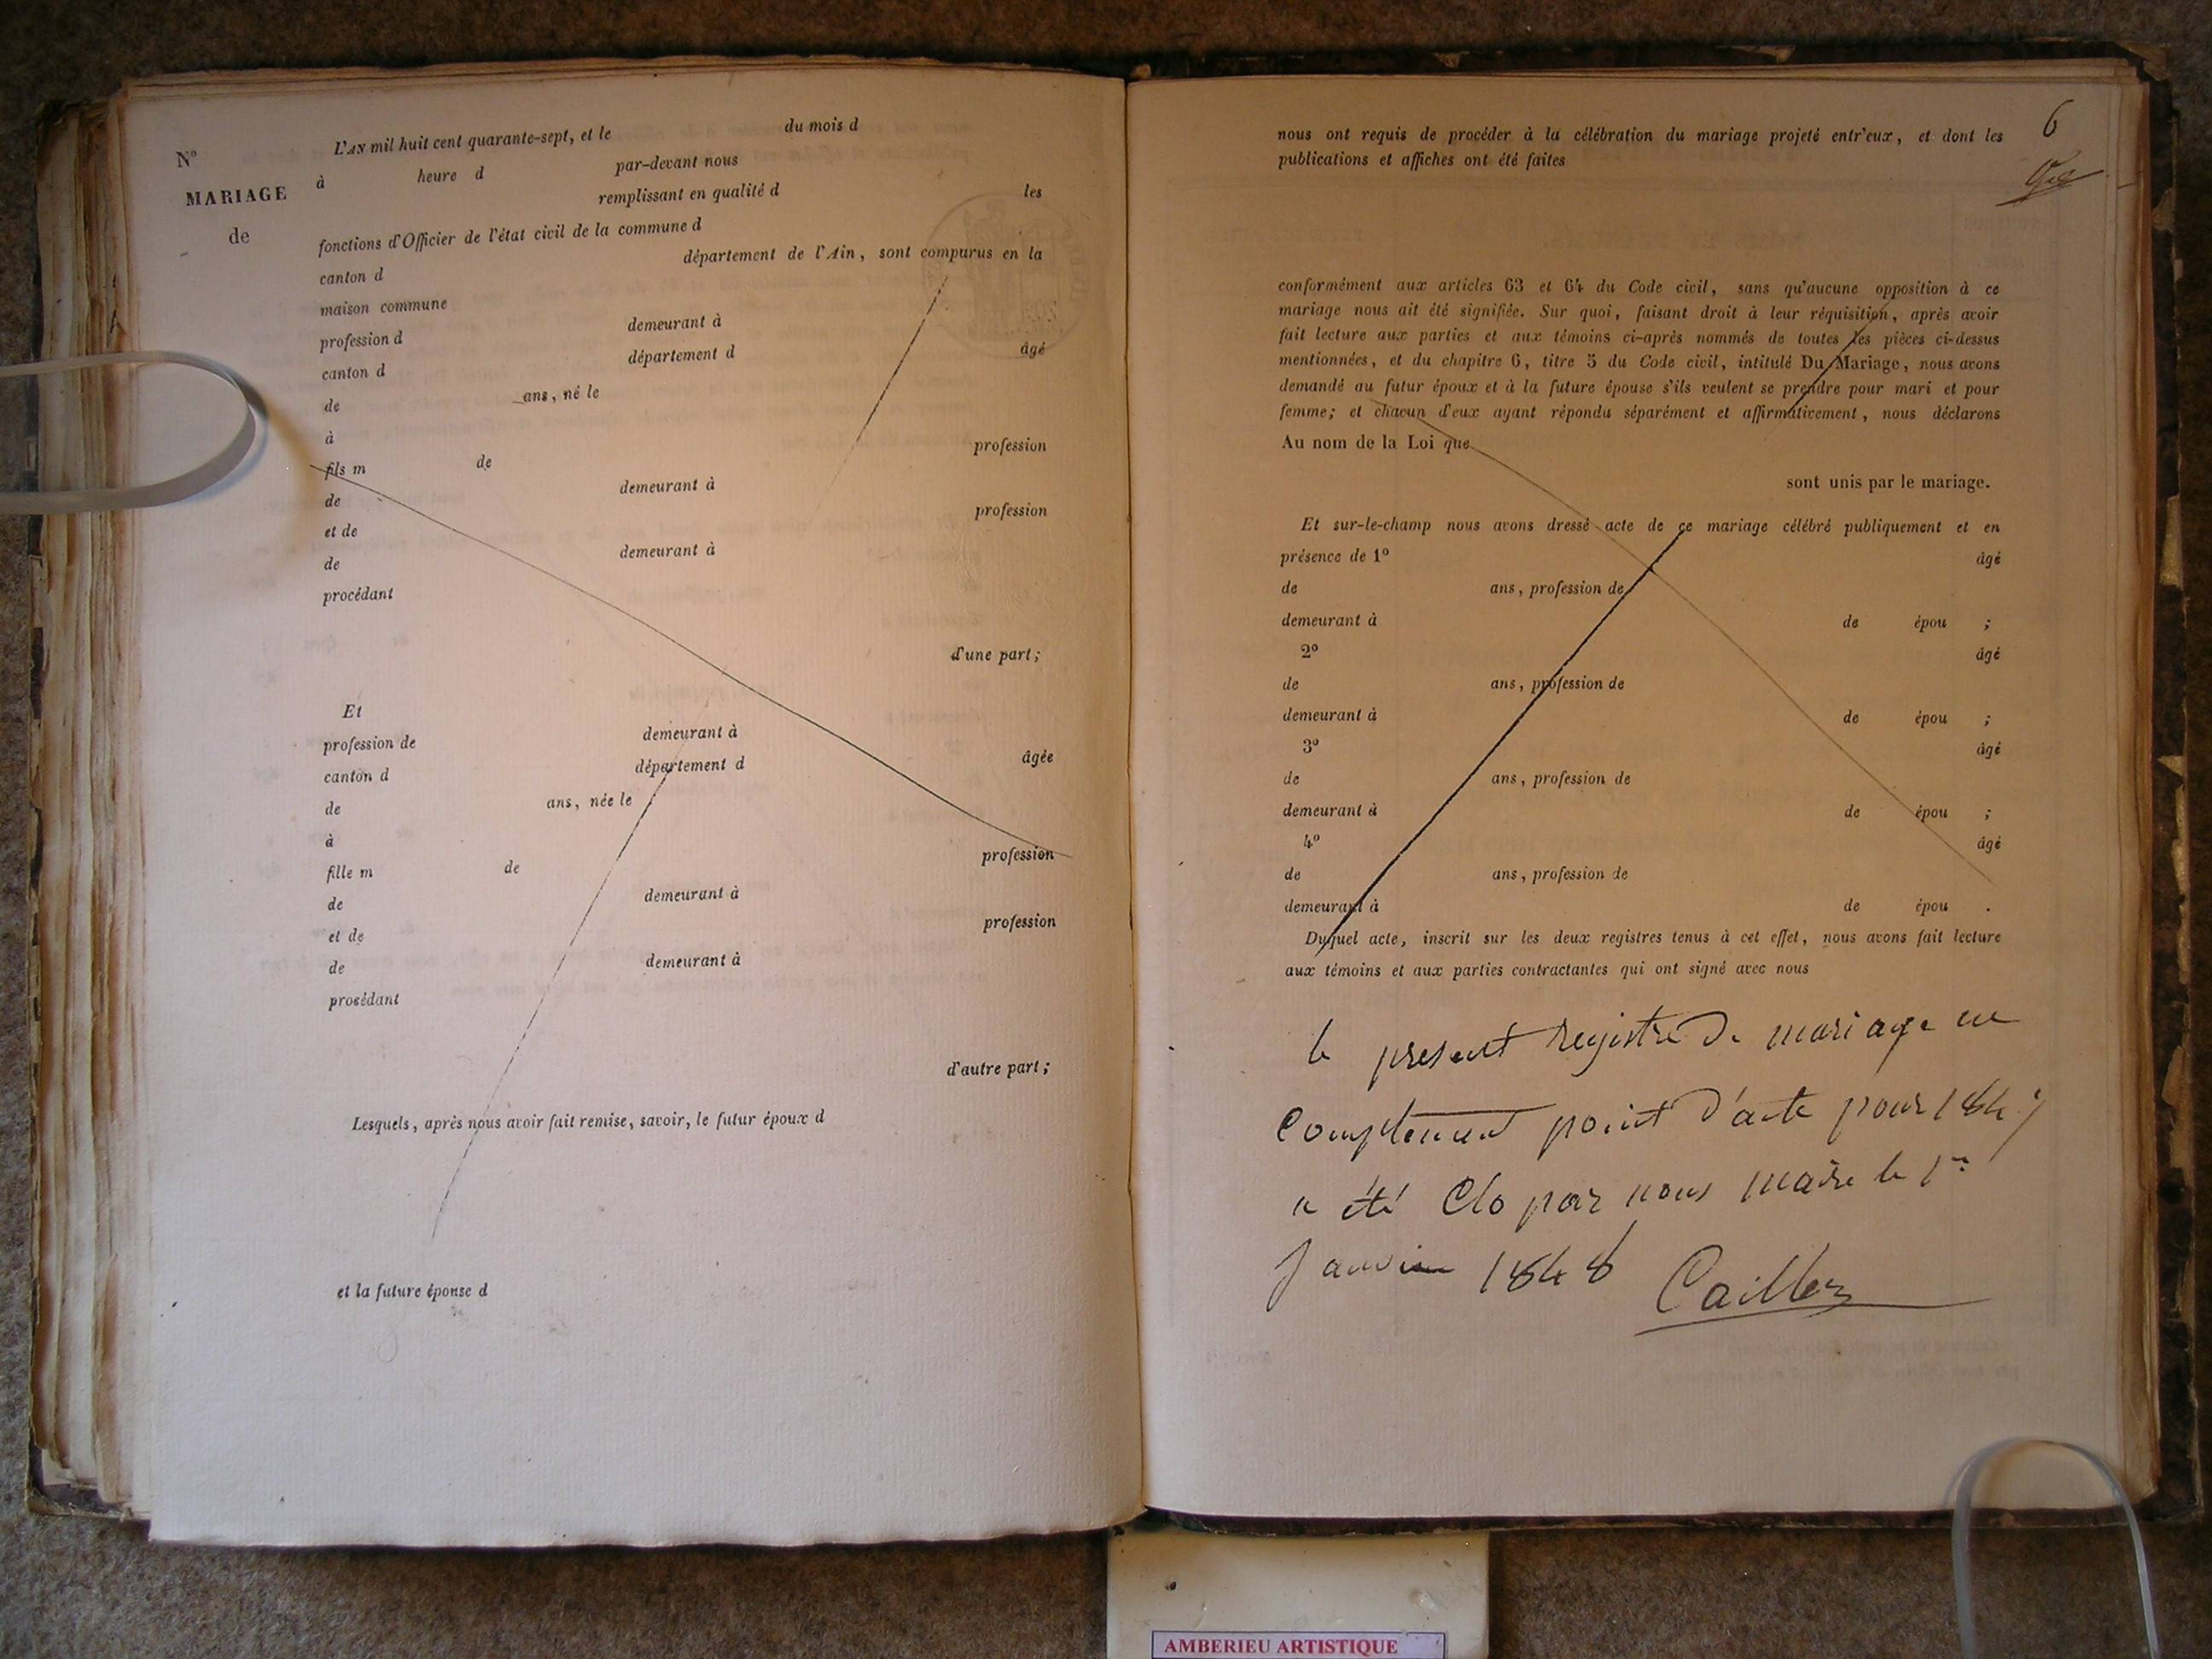 L'AN mil huit cent quarante-sept, et le du mois d
N° à heure d par-devant nous
MARIAGE remplissant en qualité d les
de fonctions d'Officier de l'état civil de la commune d
canton d département de l'Ain, sont comparus en la
maison commune
profession d demeurant à
canton d département d âgé
de ans, né le
à
fils m de profession
de demeurant à
et de profession
de demeurant à
procédant
d'une part;
Et
profession de demeurant à
canton d département d âgée
de ans, née le
à
fille m de profession
de demeurant à
et de profession
de demeurant à
procédant
d'autre part;
Lesquels, après nous avoir fait remise, savoir, le futur époux d
et la future épouse d
6
nous ont requis de procéder à la célébration du mariage projeté entr'eux, et dont les
publications et affiches ont été faites
conformément aux articles 63 et 64 du Code civil, sans qu'aucune opposition à ce
mariage nous ait été signifiée. Sur quoi, faisant droit à leur réquisition, après avoir
fait lecture aux parties et aux témoins ci-après nommés de toutes les pièces ci-dessus
mentionnées, et du chapitre 6, titre 5 du Code civil, intitulé Du Mariage, nous avons
demandé au futur époux et à la future épouse s'ils veulent se prendre pour mari et pour
femme; et chacun d'eux ayant répondu séparément et affirmativement, nous déclarons
Au nom de la Loi que
sont unis par le mariage.
Et sur-le-champ nous avons dressé acte de ce mariage célébré publiquement et en
présence de 1° âgé
de ans, profession de
demeurant à de épou ;
2° âgé
de ans, profession de
demeurant à de épou ;
3° âgé
de ans, profession de
demeurant à de épou ;
4° âgé
de ans, profession de
demeurant à de épou .
Duquel acte, inscrit sur les deux registres tenus à cet effet, nous avons fait lecture
aux témoins et aux parties contractantes qui ont signé avec nous
le present registre de mariage ne
Comptenent point d'acte pour 1847
a été Clo par nous maire le 1er
Janvier 1848 Caillez
AMBERIEU ARTISTIQUE